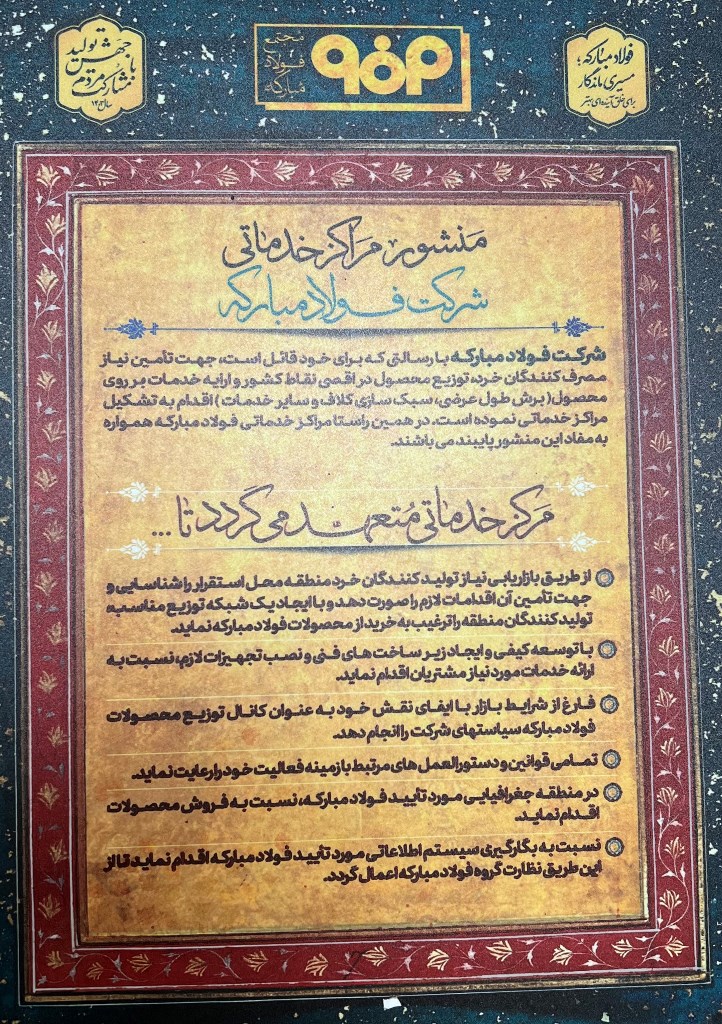 جهش تولید
با
مشارکت مردم
سال ۱۴۰۳
مجتمع
فولاد
مبارکه
فولاد مبارکه؛
مسیری ماندگار
برای خلق آینده‌ای بهتر
مَنشور مَراکز خدماتی
شرکت فولاد مبارکه
شرکت فولاد مبارکه با رسالتی که برای خود قائل است، جهت تأمین نیاز
مصرف کنندگان خرد، توزیع محصول در اقصی نقاط کشور و ارایه خدمات بر روی
محصول( برش طول عرضی، سبک سازی کلاف و سایر خدمات ) اقدام به تشکیل
مراکز خدماتی نموده است. در همین راستا مراکز خدماتی فولاد مبارکه همواره
به مفاد این منشور پایبند می باشند.
مَرکز خدماتی مُتعهد می گردد تا ...
از طریق بازاریابی نیاز تولید کنندگان خرد منطقه محل استقرار را شناسایی و
جهت تأمین آن اقدامات لازم را صورت دهد و با ایجاد یک شبکه توزیع مناسب،
تولید کنندگان منطقه را ترغیب به خرید از محصولات فولاد مبارکه نماید.
با توسعه کیفی و ایجاد زیر ساخت های فنی و نصب تجهیزات لازم، نسبت به
ارائه خدمات مورد نیاز مشتریان اقدام نماید.
فارغ از شرایط بازار با ایفای نقش خود به عنوان کانال توزیع محصولات
فولاد مبارکه سیاستهای شرکت را انجام دهد.
تمامی قوانین و دستورالعمل های مرتبط با زمینه فعالیت خود را رعایت نماید.
در منطقه جغرافیایی مورد تأیید فولاد مبارکه، نسبت به فروش محصولات
اقدام نماید.
نسبت به بکارگیری سیستم اطلاعاتی مورد تأیید فولاد مبارکه اقدام نماید تا از
این طریق نظارت گروه فولاد مبارکه اعمال گردد.